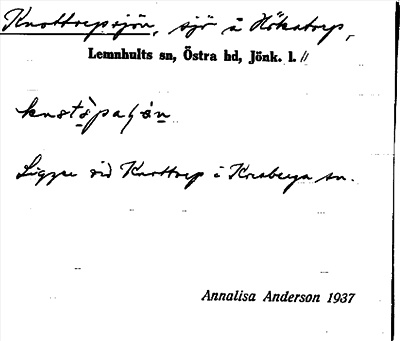 Knottorpssjön, sjö i Hökatorp,
Lemnhults sn, Östra hd, Jönk. l. //
Ligger vid Knottorp i Korsberga sn.
Annalisa Anderson 1937